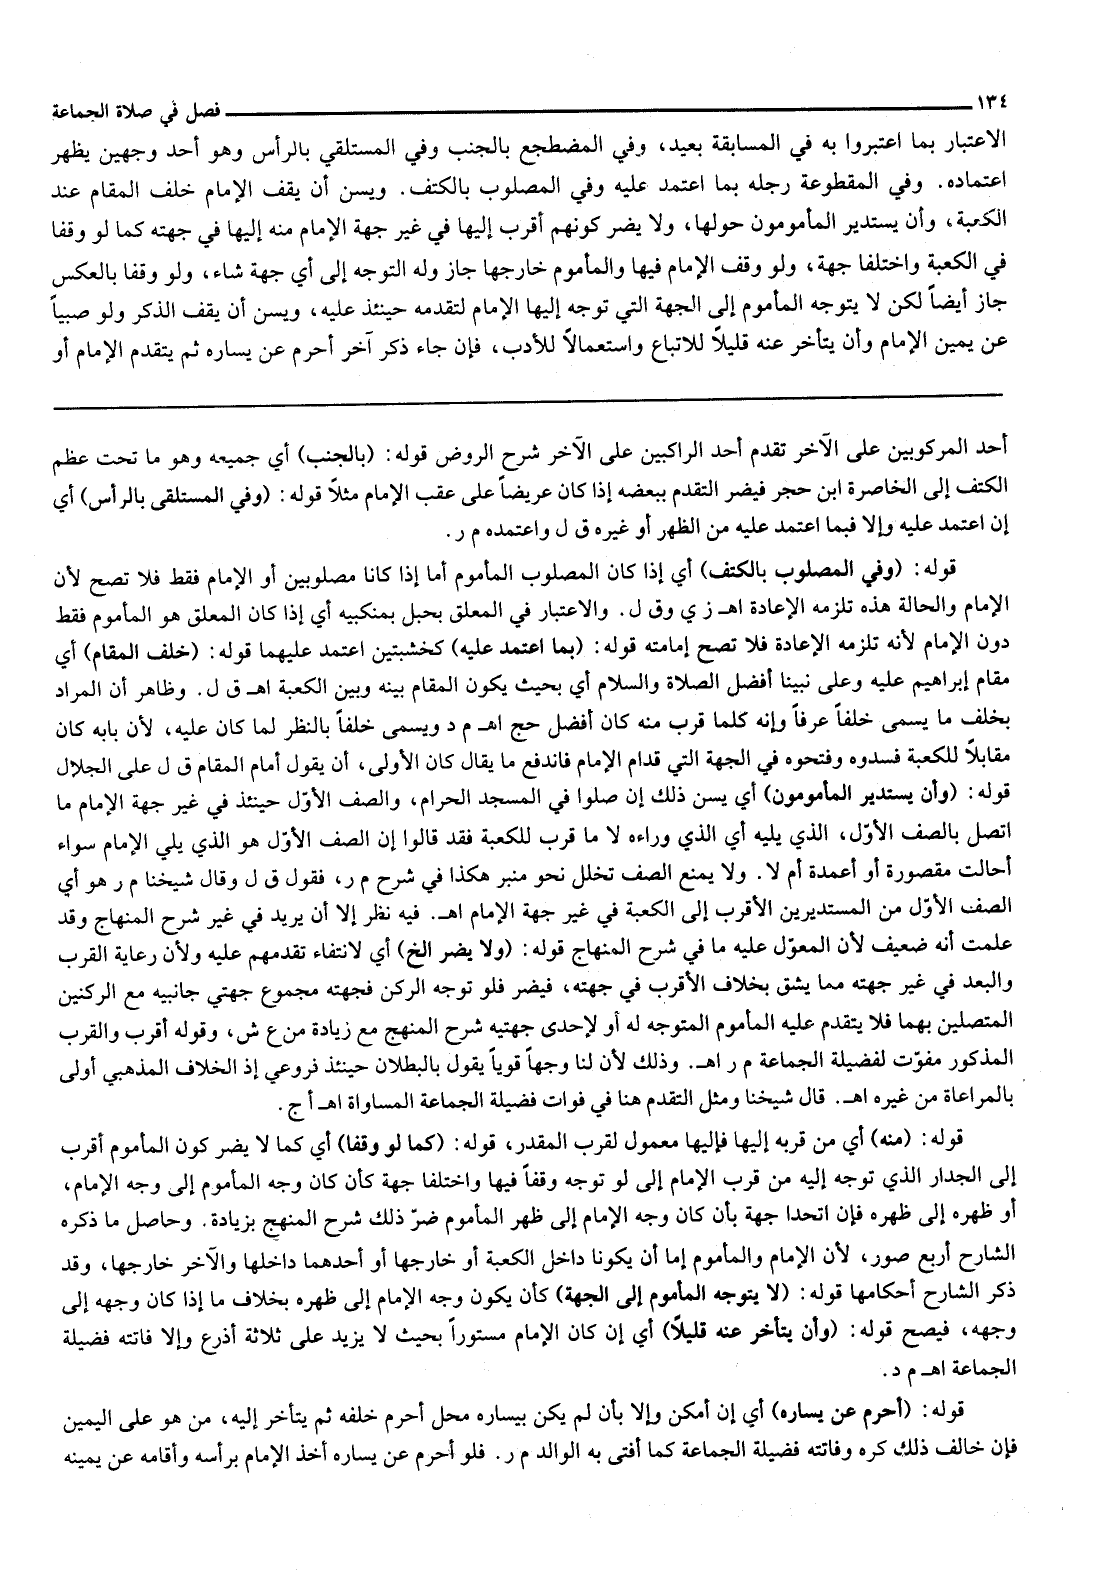 ١٣٤ فصل في صلاة الجماعة
الاعتبار بما اعتبروا به في المسابقة بعيد، وفي المضطجع بالجنب وفي المستلقي بالرأس وهو أحد وجهين يظهر
اعتماده. وفي المقطوعة رجله بما اعتمد عليه وفي المصلوب بالكتف. ويسن أن يقف الإمام خلف المقام عند
الكعبة، وأن يستدير المأمومون حولها، ولا يضر كونهم أقرب إليها في غير جهة الإمام منه إليها في جهته كما لو وقفا
في الكعبة واختلفا جهة، ولو وقف الإمام فيها والمأموم خارجها جاز وله التوجه إلى أي جهة شاء، ولو وقفا بالعكس
جاز أيضاً لكن لا يتوجه المأموم إلى الجهة التي توجه إليها الإمام لتقدمه حينئذ عليه، ويسن أن يقف الذكر ولو صبياً
عن يمين الإمام وأن يتأخر عنه قليلاً للاتباع واستعمالاً للأدب، فإن جاء ذكر آخر أحرم عن يساره ثم يتقدم الإمام أو
أحد المركوبين على الآخر تقدم أحد الراكبين على الآخر شرح الروض قوله: (بالجنب) أي جميعه وهو ما تحت عظم
الكتف إلى الخاصرة ابن حجر فيضر التقدم ببعضه إذا كان عريضاً على عقب الإمام مثلاً قوله: (وفي المستلقى بالرأس) أي
إن اعتمد عليه وإلا فبما اعتمد عليه من الظهر أو غيره ق ل واعتمده م ر.
قوله: (وفي المصلوب بالكتف) أي إذا كان المصلوب المأموم أما إذا كانا مصلوبين أو الإمام فقط فلا تصح لأن
الإمام والحالة هذه تلزمه الإعادة اهـ ز ي وق ل. والاعتبار في المعلق بحبل بمنكبيه أي إذا كان المعلق هو المأموم فقط
دون الإمام لأنه تلزمه الإعادة فلا تصح إمامته قوله: (بما اعتمد عليه) كخشبتين اعتمد عليهما قوله: (خلف المقام) أي
مقام إبراهيم عليه وعلى نبينا أفضل الصلاة والسلام أي بحيث يكون المقام بينه وبين الكعبة اهـ ق ل. وظاهر أن المراد
بخلف ما يسمى خلفاً عرفاً وإنه كلما قرب منه كان أفضل حج اهـ م د ويسمى خلفاً بالنظر لما كان عليه، لأن بابه كان
مقابلاً للكعبة فسدوه وفتحوه في الجهة التي قدام الإمام فاندفع ما يقال كان الأولى، أن يقول أمام المقام ق ل على الجلال
قوله: (وأن يستدير المأمومون) أي يسن ذلك إن صلوا في المسجد الحرام، والصف الأوّل حينئذ في غير جهة الإمام ما
اتصل بالصف الأوّل، الذي يليه أي الذي وراءه لا ما قرب للكعبة فقد قالوا إن الصف الأوّل هو الذي يلي الإمام سواء
أحالت مقصورة أو أعمدة أم لا. ولا يمنع الصف تخلل نحو منبر هكذا في شرح م ر، فقول ق ل وقال شيخنا م ر هو أي
الصف الأوّل من المستديرين الأقرب إلى الكعبة في غير جهة الإمام اهـ. فيه نظر إلا أن يريد في غير شرح المنهاج وقد
علمت أنه ضعيف لأن المعوّل عليه ما في شرح المنهاج قوله: (ولا يضر الخ) أي لانتفاء تقدمهم عليه ولأن رعاية القرب
والبعد في غير جهته مما يشق بخلاف الأقرب في جهته، فيضر فلو توجه الركن فجهته مجموع جهتي جانبيه مع الركنين
المتصلين بهما فلا يتقدم عليه المأموم المتوجه له أو لإحدى جهتيه شرح المنهج مع زيادة من ع ش، وقوله أقرب والقرب
المذكور مفوّت لفضيلة الجماعة م ر اهـ. وذلك لأن لنا وجهاً قوياً يقول بالبطلان حينئذ فروعي إذ الخلاف المذهبي أولى
بالمراعاة من غيره اهـ. قال شيخنا ومثل التقدم هنا في فوات فضيلة الجماعة المساواة اهـ أ ج.
قوله: (منه) أي من قربه إليها فإليها معمول لقرب المقدر، قوله: (كما لو وقفا) أي كما لا يضر كون المأموم أقرب
إلى الجدار الذي توجه إليه من قرب الإمام إلى لو توجه وقفاً فيها واختلفا جهة كأن كان وجه المأموم إلى وجه الإمام،
أو ظهره إلى ظهره فإن اتحدا جهة بأن كان وجه الإمام إلى ظهر المأموم ضرّ ذلك شرح المنهج بزيادة. وحاصل ما ذكره
الشارح أربع صور، لأن الإمام والمأموم إما أن يكونا داخل الكعبة أو خارجها أو أحدهما داخلها والآخر خارجها، وقد
ذكر الشارح أحكامها قوله: (لا يتوجه المأموم إلى الجهة) كأن يكون وجه الإمام إلى ظهره بخلاف ما إذا كان وجهه إلى
وجهه، فيصح قوله: (وأن يتأخر عنه قليلاً) أي إن كان الإمام مستوراً بحيث لا يزيد على ثلاثة أذرع وإلا فاتته فضيلة
الجماعة اهـ م د.
قوله: (أحرم عن يساره) أي إن أمكن وإلا بأن لم يكن بيساره محل أحرم خلفه ثم يتأخر إليه، من هو على اليمين
فإن خالف ذلك كره وفاتته فضيلة الجماعة كما أفتى به الوالد م ر. فلو أحرم عن يساره أخذ الإمام برأسه وأقامه عن يمينه